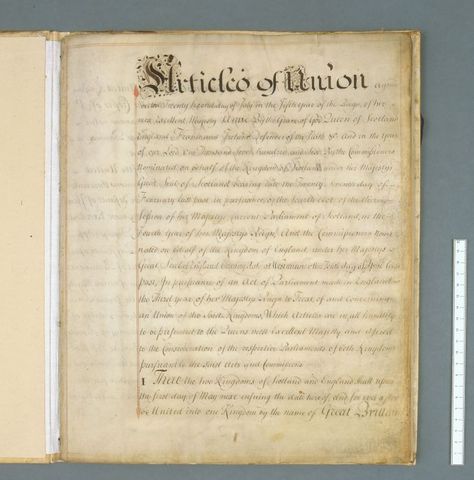 Articles of Union agreed
on the Twenty Second day of July in the Fifth year of the Reign of her
most Excellent Majesty Anne By the Grace of God Queen of Scotland
England France and Ireland Defender of the Faith &c And in the Year
of our Lord One Thousand Seven hundred and Six By the Commissioners
Nominated on behalf of the Kingdom of Scotland under her Majestys
Great Seal of Scotland bearing date the Twenty Seventh day of
February last past in pursuance of the fourth Act of the third
Session of her Majestys Current Parliament of Scotland, in the
fourth year of her Majestys Reign, And the Commissioners Nomi
nated on behalf of the Kingdom of England under her Majestys
Great Seal of England bearing date at Westminster the Tenth day of April last
past, In pursuance of an Act of Parliament made in England
the Third Year of her Majestys Reign to Treat of and Concerning
an Union of the said Kingdoms, Which Articles are in all humility
to be presented to the Queens most Excellent Majesty and offered
to the Consideration of the respective Parliaments of both Kingdoms
pursuant to the said Acts and Commissions
I That the two Kingdoms of Scotland and England shall upon
the first day of May next ensuing the date hereof, and for ever after
be United into one Kingdom by the name of Great Britain